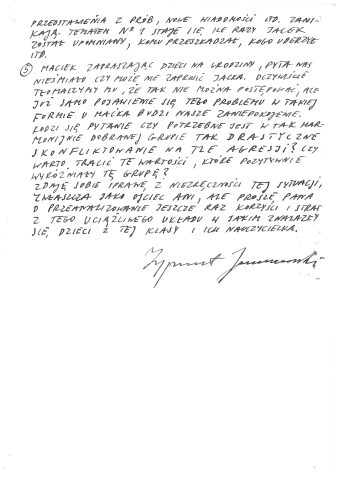 PRZEDSTAWIENIA Z PRÓB, NOWE WIADOMOŚCI ITD. ZANI-
KAJĄ. TEMATEM Nº 1 STAJE SIĘ ILE RAZY JACEK
ZOSTAŁ UPOMNIANY, KOMU PRZESZKADZAŁ, KOGO UDERZYŁ
ITD.
⑤ MACIEK ZAPRASZAJĄC DZIECI NA URODZINY, PYTA NAS
NIEŚMIAŁO CZY MOŻE NIE ZAPROSIĆ JACKA. OCZYWIŚCIE
TŁUMACZYMY MU, ŻE TAK NIE MOŻNA POSTĘPOWAĆ, ALE
JUŻ SAMO POJAWIENIE SIĘ TEGO PROBLEMU W TAKIEJ
FORMIE U MAĆKA BUDZI NASZE ZANIEPOKOJENIE.
RODZI SIĘ PYTANIE CZY POTRZEBNE JEST W TAK HAR-
MONIJNIE DOBRANEJ GRUPIE TAK DRASTYCZNE
SKONFLIKTOWANIE NA TLE AGRESJI? CZY
WARTO TRACIĆ TE WARTOŚCI, KTÓRE POZYTYWNIE
WYRÓŻNIAŁY TĘ GRUPĘ?
ZDAJĘ SOBIE SPRAWĘ Z NIEZRĘCZNOŚCI TEJ SYTUACJI,
ZWŁASZCZA JAKO OJCIEC ANI, ALE PROSZĘ PANA
O PRZEANALIZOWANIE JESZCZE RAZ KORZYŚCI I STRAT
Z TEGO UCIĄŻLIWEGO UKŁADU W JAKIM ZNALAZŁY
SIĘ DZIECI Z TEJ KLASY I ICH NAUCZYCIELKA.
Zygmunt